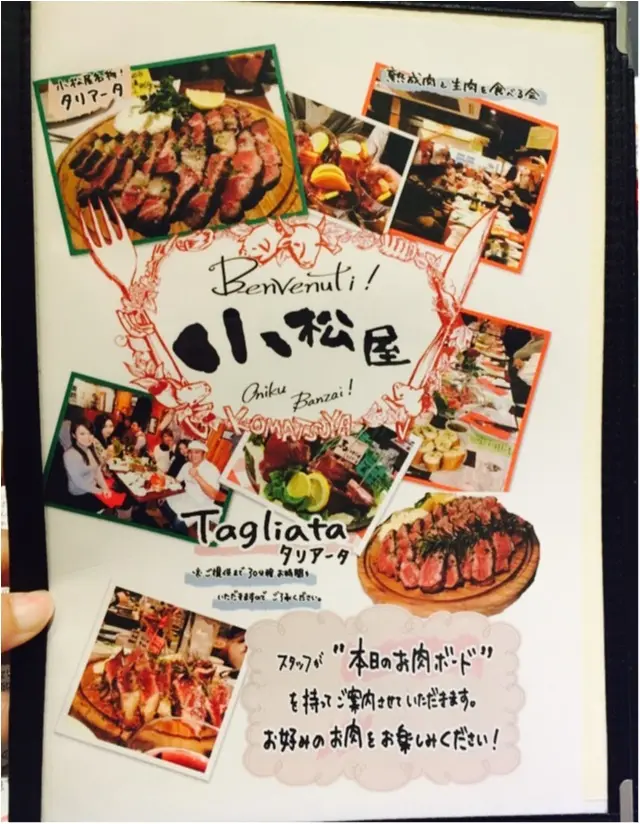 小松屋名物!
タリアータ
熟成肉と生肉を食べる会
Benvenuti!
小松屋
Oniku Banzai!
KOMATSUYA
Tagliata
タリアータ
※ご提供まで30分程お時間を
いただきますので ご了承ください。
スタッフが"本日のお肉ボード"
を持ってご案内させていただきます。
お好みのお肉をお楽しみください!